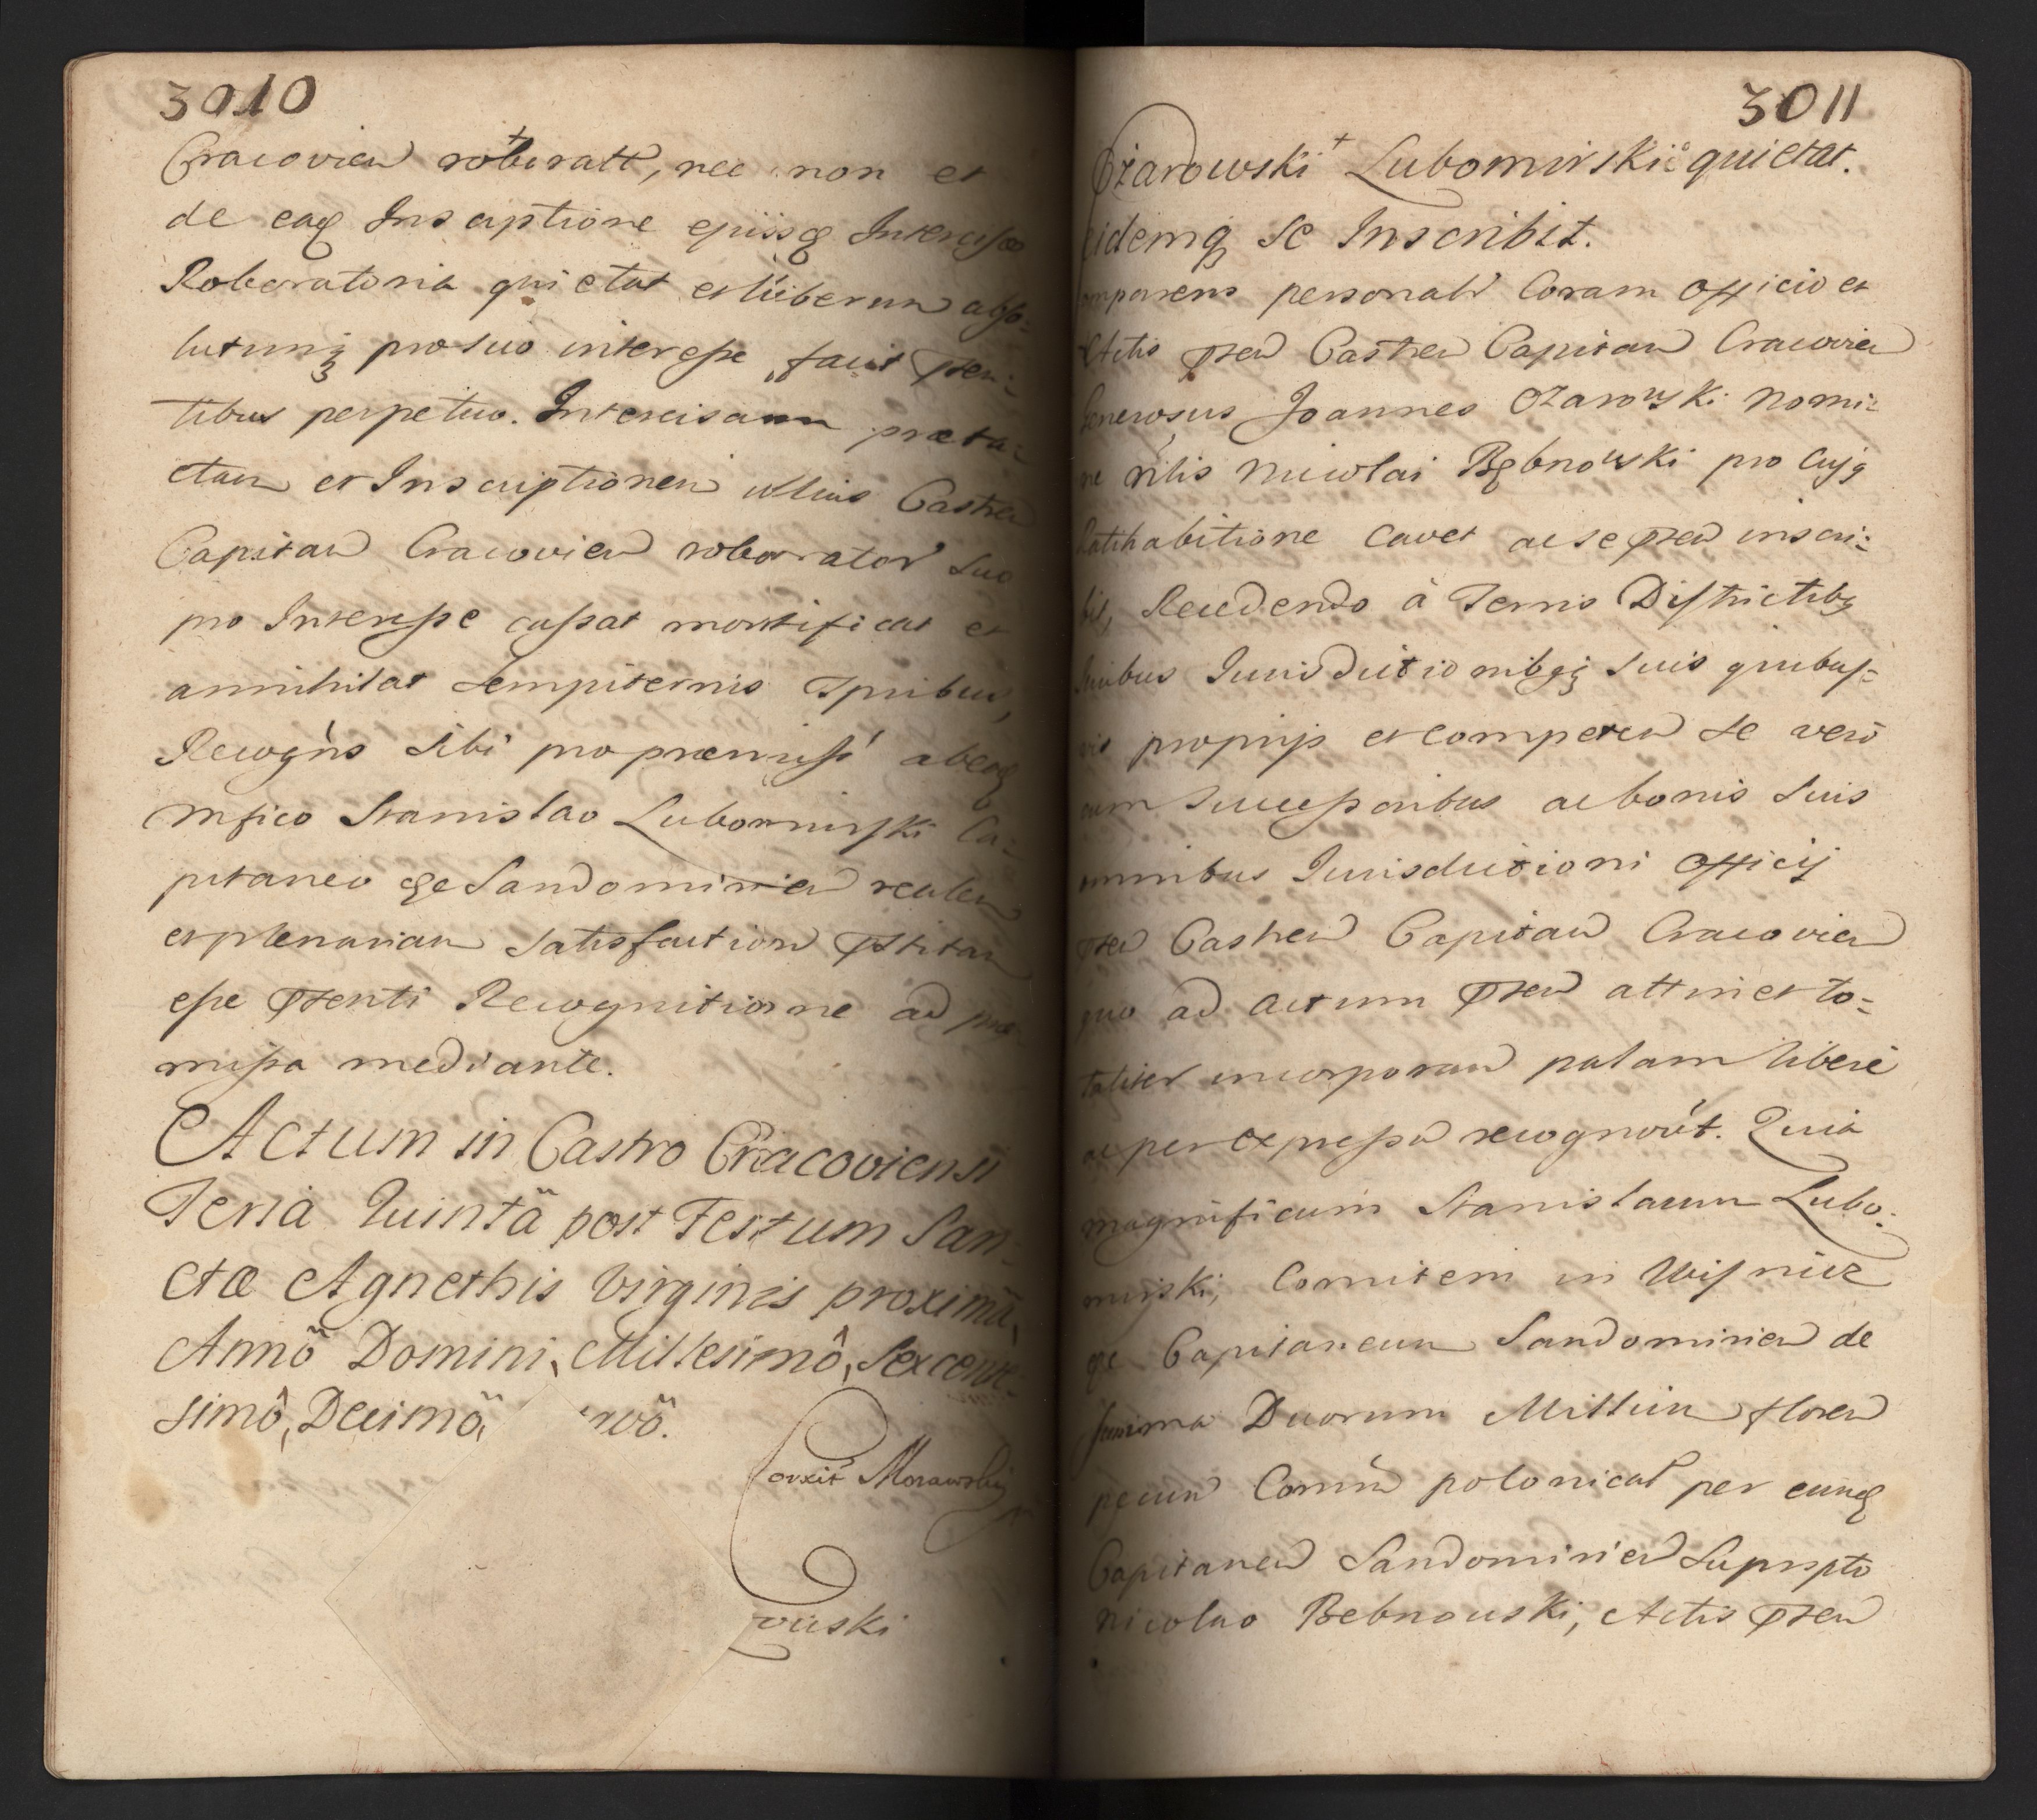 3010
Cracovien roboratt, nec non et
de eaq Inscriptione ejussq Intercisæ
Roboratoria quietat et liberum abso-
lutumq pro suo interesse facit pten-
tibus perpetuo. Intercisam præta-
ctam et Inscriptionem illius Castren
Capitan Cracovien roborator suo
pro Interesse cassat mortificat et
annihilat sempiternis tpribus,
Recogns sibi pro præmiss ab eoq
Mfico Stanislao Lubomirski Ca-
pitaneo Sandomirien realem
et plenariam satisfaction ptitam
esse ptenti Recognitione ad præ-
missa mediante.
Actum in Castro Cracoviensi
Feria Quintâ post Festum San-
ctæ Agnethis Virginis proximâ,
Annô Domini, Millesimô, Sexcente-
simô, Decimô, vô.
Corxit Morawski
ouski
3011
Ożarowski Lubomirski quietat.
eidemq se Inscribit.
omparens personalr Coram Officio et
Actis pten Castren Capitan Cracovien
Generosus Joannes Ożarowski nomi-
ne nilis Nicolai Bębnowski pro cujq
Ratihabitione cavet ac se pten inscri-
bit, Recedendo à Terris Districtibq
Juribus Jurisdictionibqq suis quibus-
vis proprijs et competen se verò
cum Successoribus ac bonis suis
omnibus Jurisdictioni Officij
pten Castren Capitan Cracovien
quo ad actum pten attinet to-
taliter incorporan palam liberè
ac per expressu recognovit. Quia
magnificum Stanislaum Lubo-
mirski, Comitem in Wisnicz
Capitaneum Sandomirien de
summa Duorum Millium floren
pecun Comun polonical per eunq
Capitaneu Sandomirien Suprspto
Nicolao Bebnouski, Actis pten